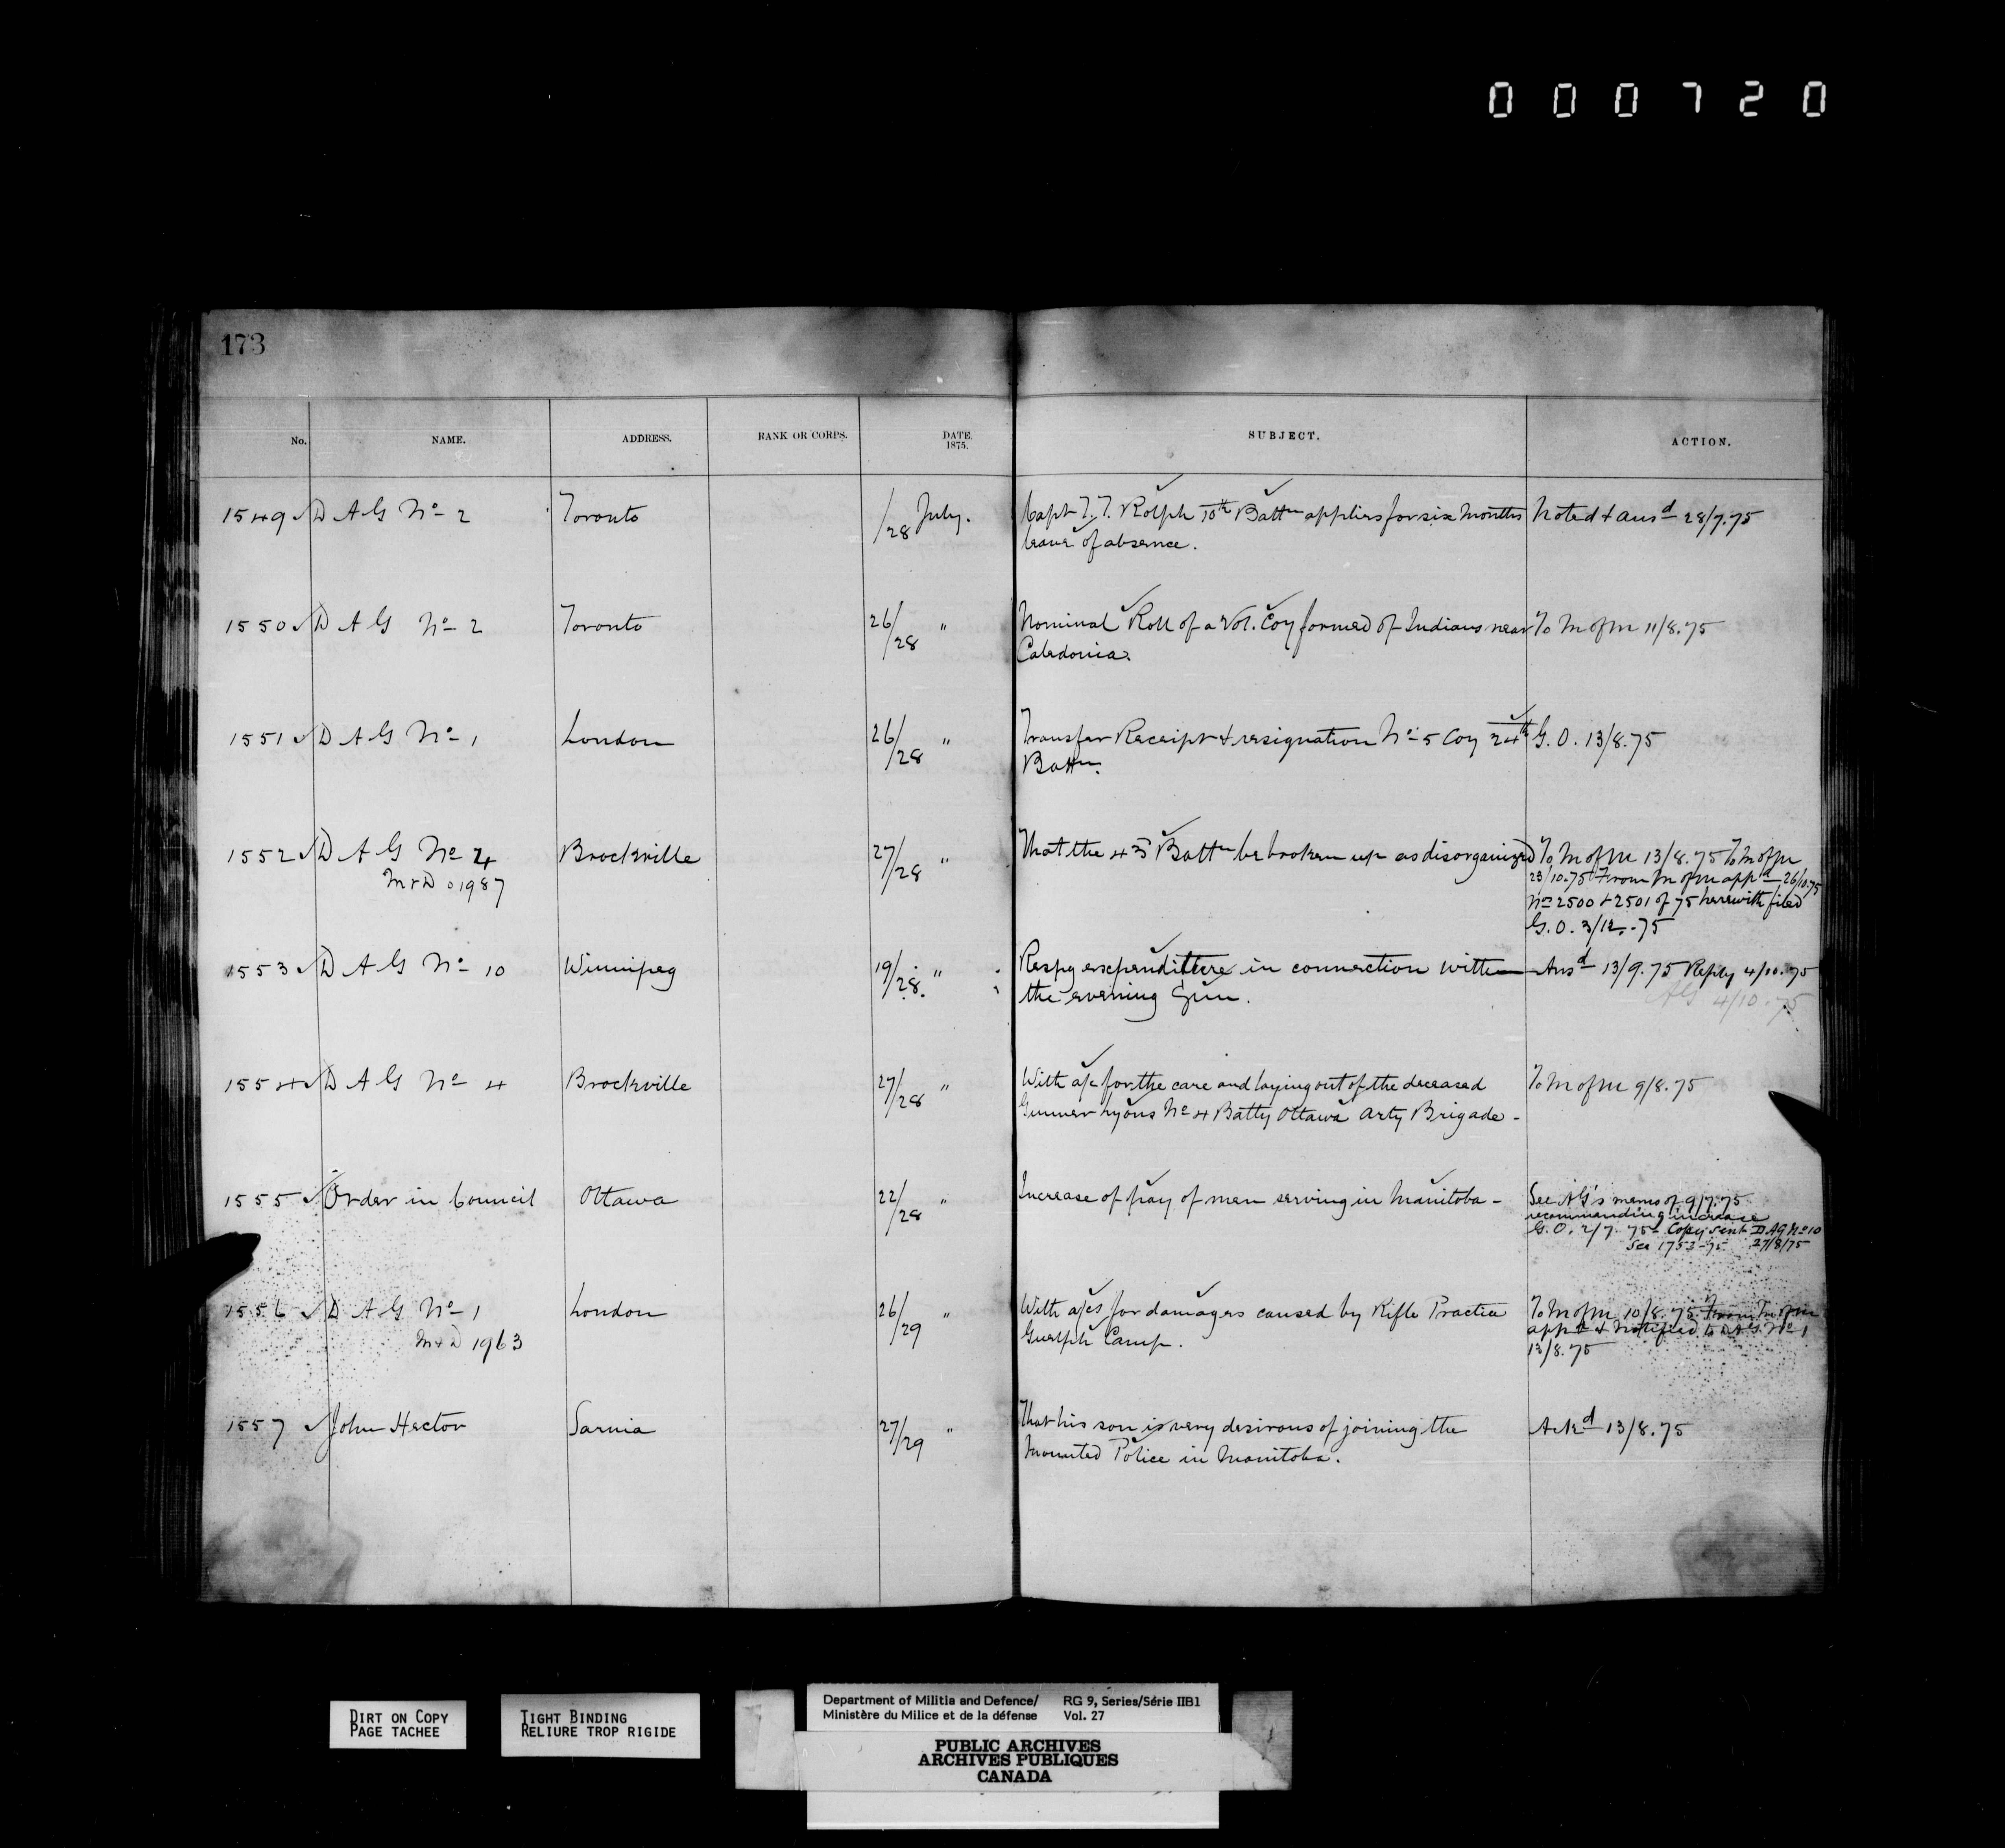 000720
173
No. NAME. ADDRESS. RANK OR CORPS. DATE. 1875. SUBJECT. ACTION.
1549 D A G No 2 Toronto /28 July. Capt T. T. Rolph 10th Battn applies for six months Noted & ansd 28/7.75
leave of absence.
1550 D A G No 2 Toronto 26/28 " Nominal Roll of a Vol. Coy formed of Indians near To M of M 11/8.75
Caledonia.
1551 D A G No 1 London 26/28 " Transfer Receipt & resignation No 5 Coy 24th G. O. 13/8.75
Battn.
1552 D A G No 4 Brockville 27/28 " That the 43 Battn be broken up as disorganized To M of M 13/8.75 To M of M
M & D 1987 23/10.75 From M of M appd 26/10.75
No 2500 & 2501 of 75 herewith filed
G. O. 3/12.75
1553 D A G No 10 Winnipeg 19/28. " Respg expenditure in connection with Ansd 13/9.75 Reply 4/10.75
the evening Gun. AG 4/10.75
1554 D A G No 4 Brockville 27/28 " With a/c for the care and laying out of the deceased To M of M 9/8.75
Gunner Lyons No 4 Batty Ottawa Arty Brigade -
1555 Order in Council Ottawa 22/28 " Increase of pay of men serving in Manitoba - See AG's memo of 9/7.75
recommending increase
G. O. 2/7.75 - Copy sent D A G No 10
See 1753-75 27/8/75
1556 D A G No 1 London 26/29 " With a/cs for damages caused by Rifle Practice To M of M 10/8.75. From M of M
M & D 1963 Guelph Camp. appd & notified to DAG No 1
13/8.75
1557 John Hector Sarnia 27/29 " That his son is very desirous of joining the Ackd 13/8.75
Mounted Police in Manitoba.
DIRT ON COPY
PAGE TACHEE
TIGHT BINDING
RELIURE TROP RIGIDE
Department of Militia and Defence/ RG 9, Series/Série IIB1
Ministère du Milice et de la défense Vol. 27
PUBLIC ARCHIVES
ARCHIVES PUBLIQUES
CANADA